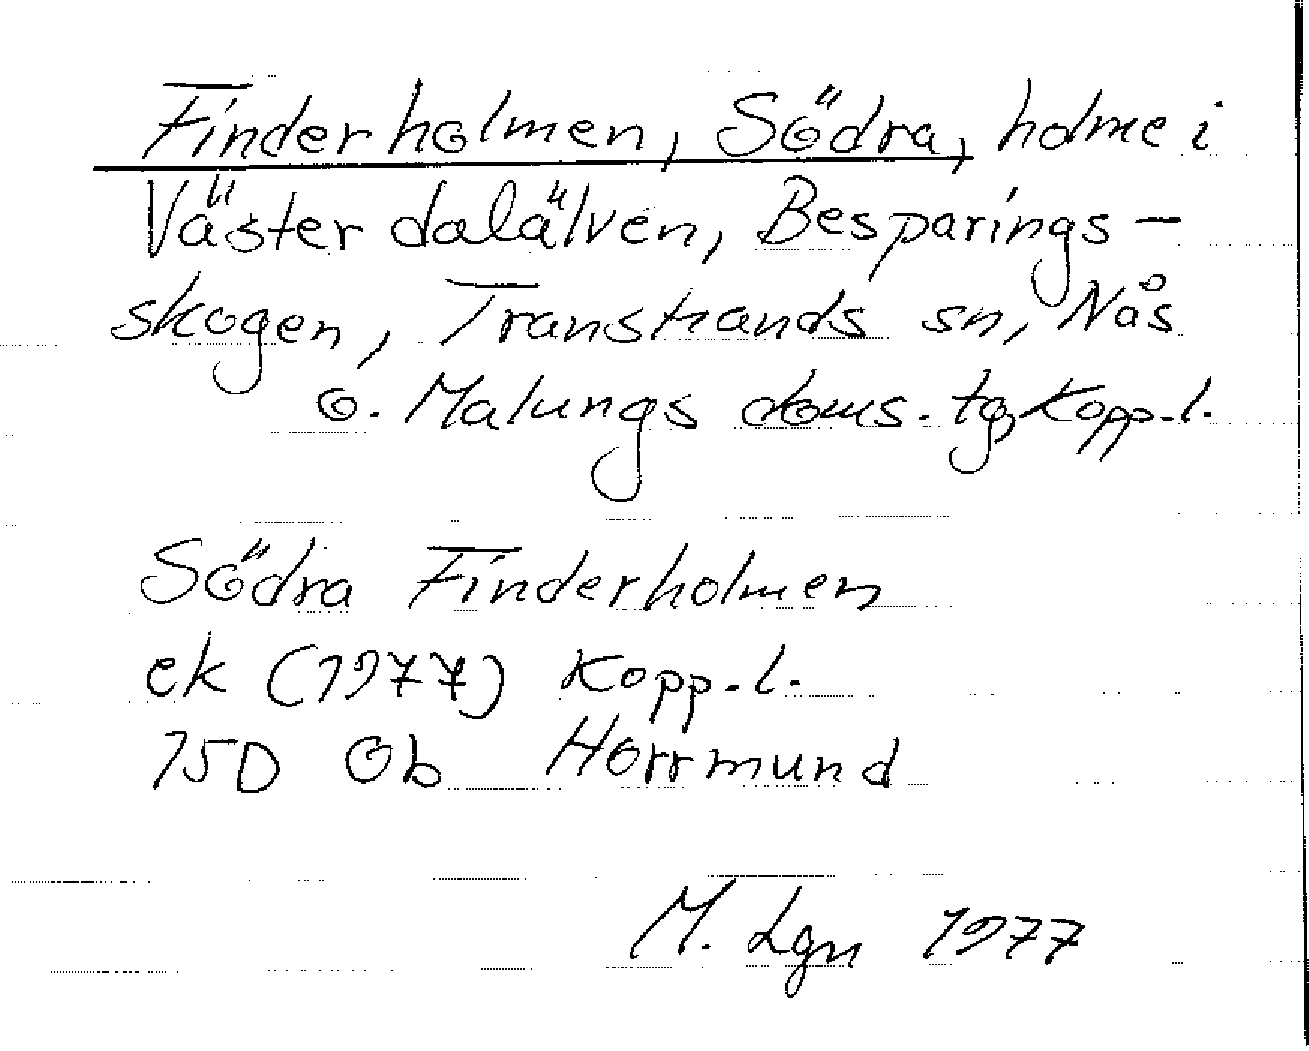 Finderholmen, Södra, holme i
Västerdalälven, Besparings-
skogen, Transtrands sn, Nås
o. Malungs doms. tg, Kopp.l.
Södra Finderholmen
ek (1977) Kopp.l.
15D 0b Horrmund
M. Lgn 1977